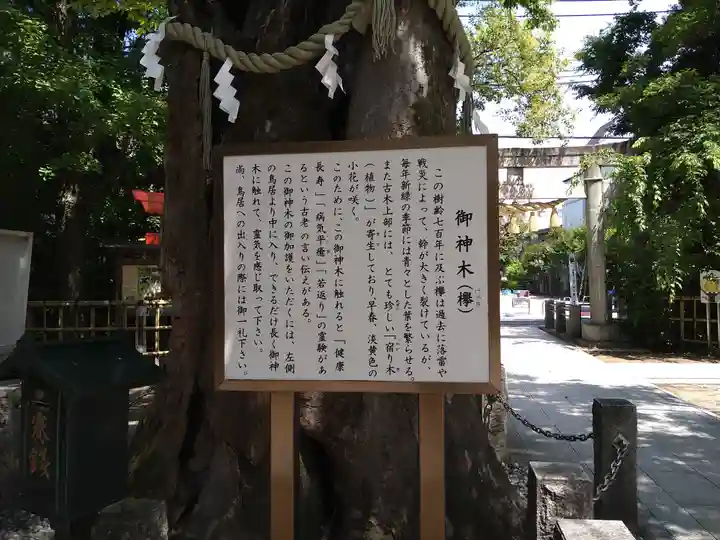 御神木（欅）
けやき
この樹齢七百年に及ぶ欅は過去に落雷や
戦災によって、幹が大きく裂けているが、
毎年新緑の季節には青々とした葉を繁らせる。
また古木上部には、とても珍しい『宿り木
（植物）』が寄生しており早春、淡黄色の
小花が咲く。
このために、この御神木に触れると「健康
長寿」「病気平癒」「若返り」の霊験があ
るという古老の言い伝えがある。
この御神木の御加護をいただくには、左側
の鳥居より中に入り、できるだけ長く御神
木に触れて、霊気を感じ取って下さい。
尚、鳥居への出入りの際には御一礼下さい。
賽銭